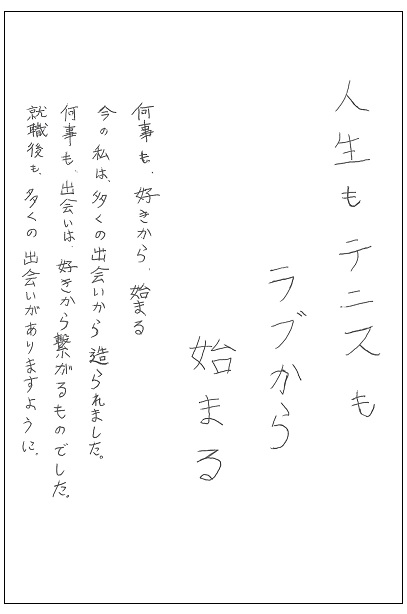 人生もテニスも
ラブから
始まる
何事も、好きから、始まる
今の私は、多くの出会いから造られました。
何事も、出会いは、好きから繋がるものでした。
就職後も、多くの出会いがありますように。